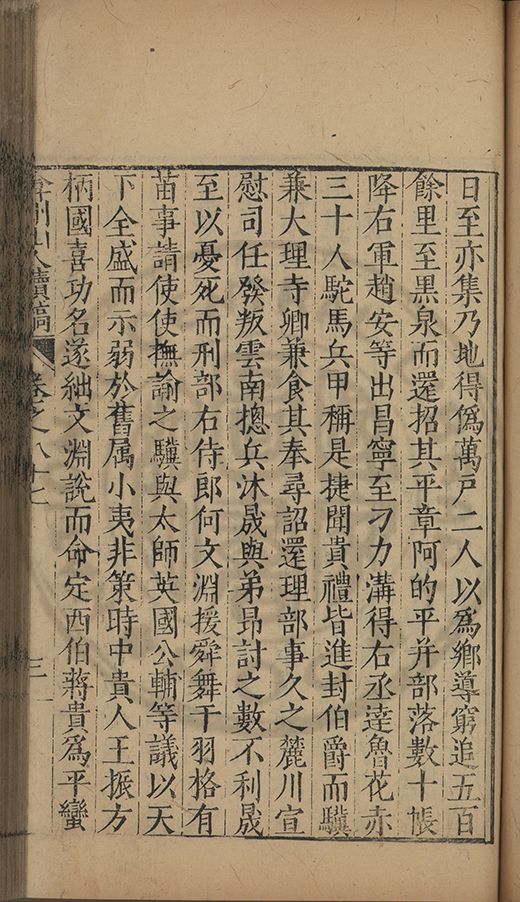 日至亦集乃地得僞萬戶二人以爲鄉導窮追五百
餘里至黑泉而還招其平章阿的平并部落數十帳
降右軍趙安等出昌寧至刁力溝得右丞達魯花赤
三十人駝馬兵甲稱是捷聞貴禮皆進封伯爵而驥
兼大理寺卿兼食其奉尋詔還理部事久之麓川宣
慰司任發叛雲南摠兵沐晟與弟昂討之數不利晟
至以憂死而刑部右侍郎何文淵援舜舞干羽格有
苗事請使使撫諭之驥與太師英國公輔等議以天
下全盛而示弱於舊属小夷非策時中貴人王振方
柄國喜功名遂絀文淵說而命定西伯蔣貴爲平蠻
弇州山人續稿 卷之八十七 三